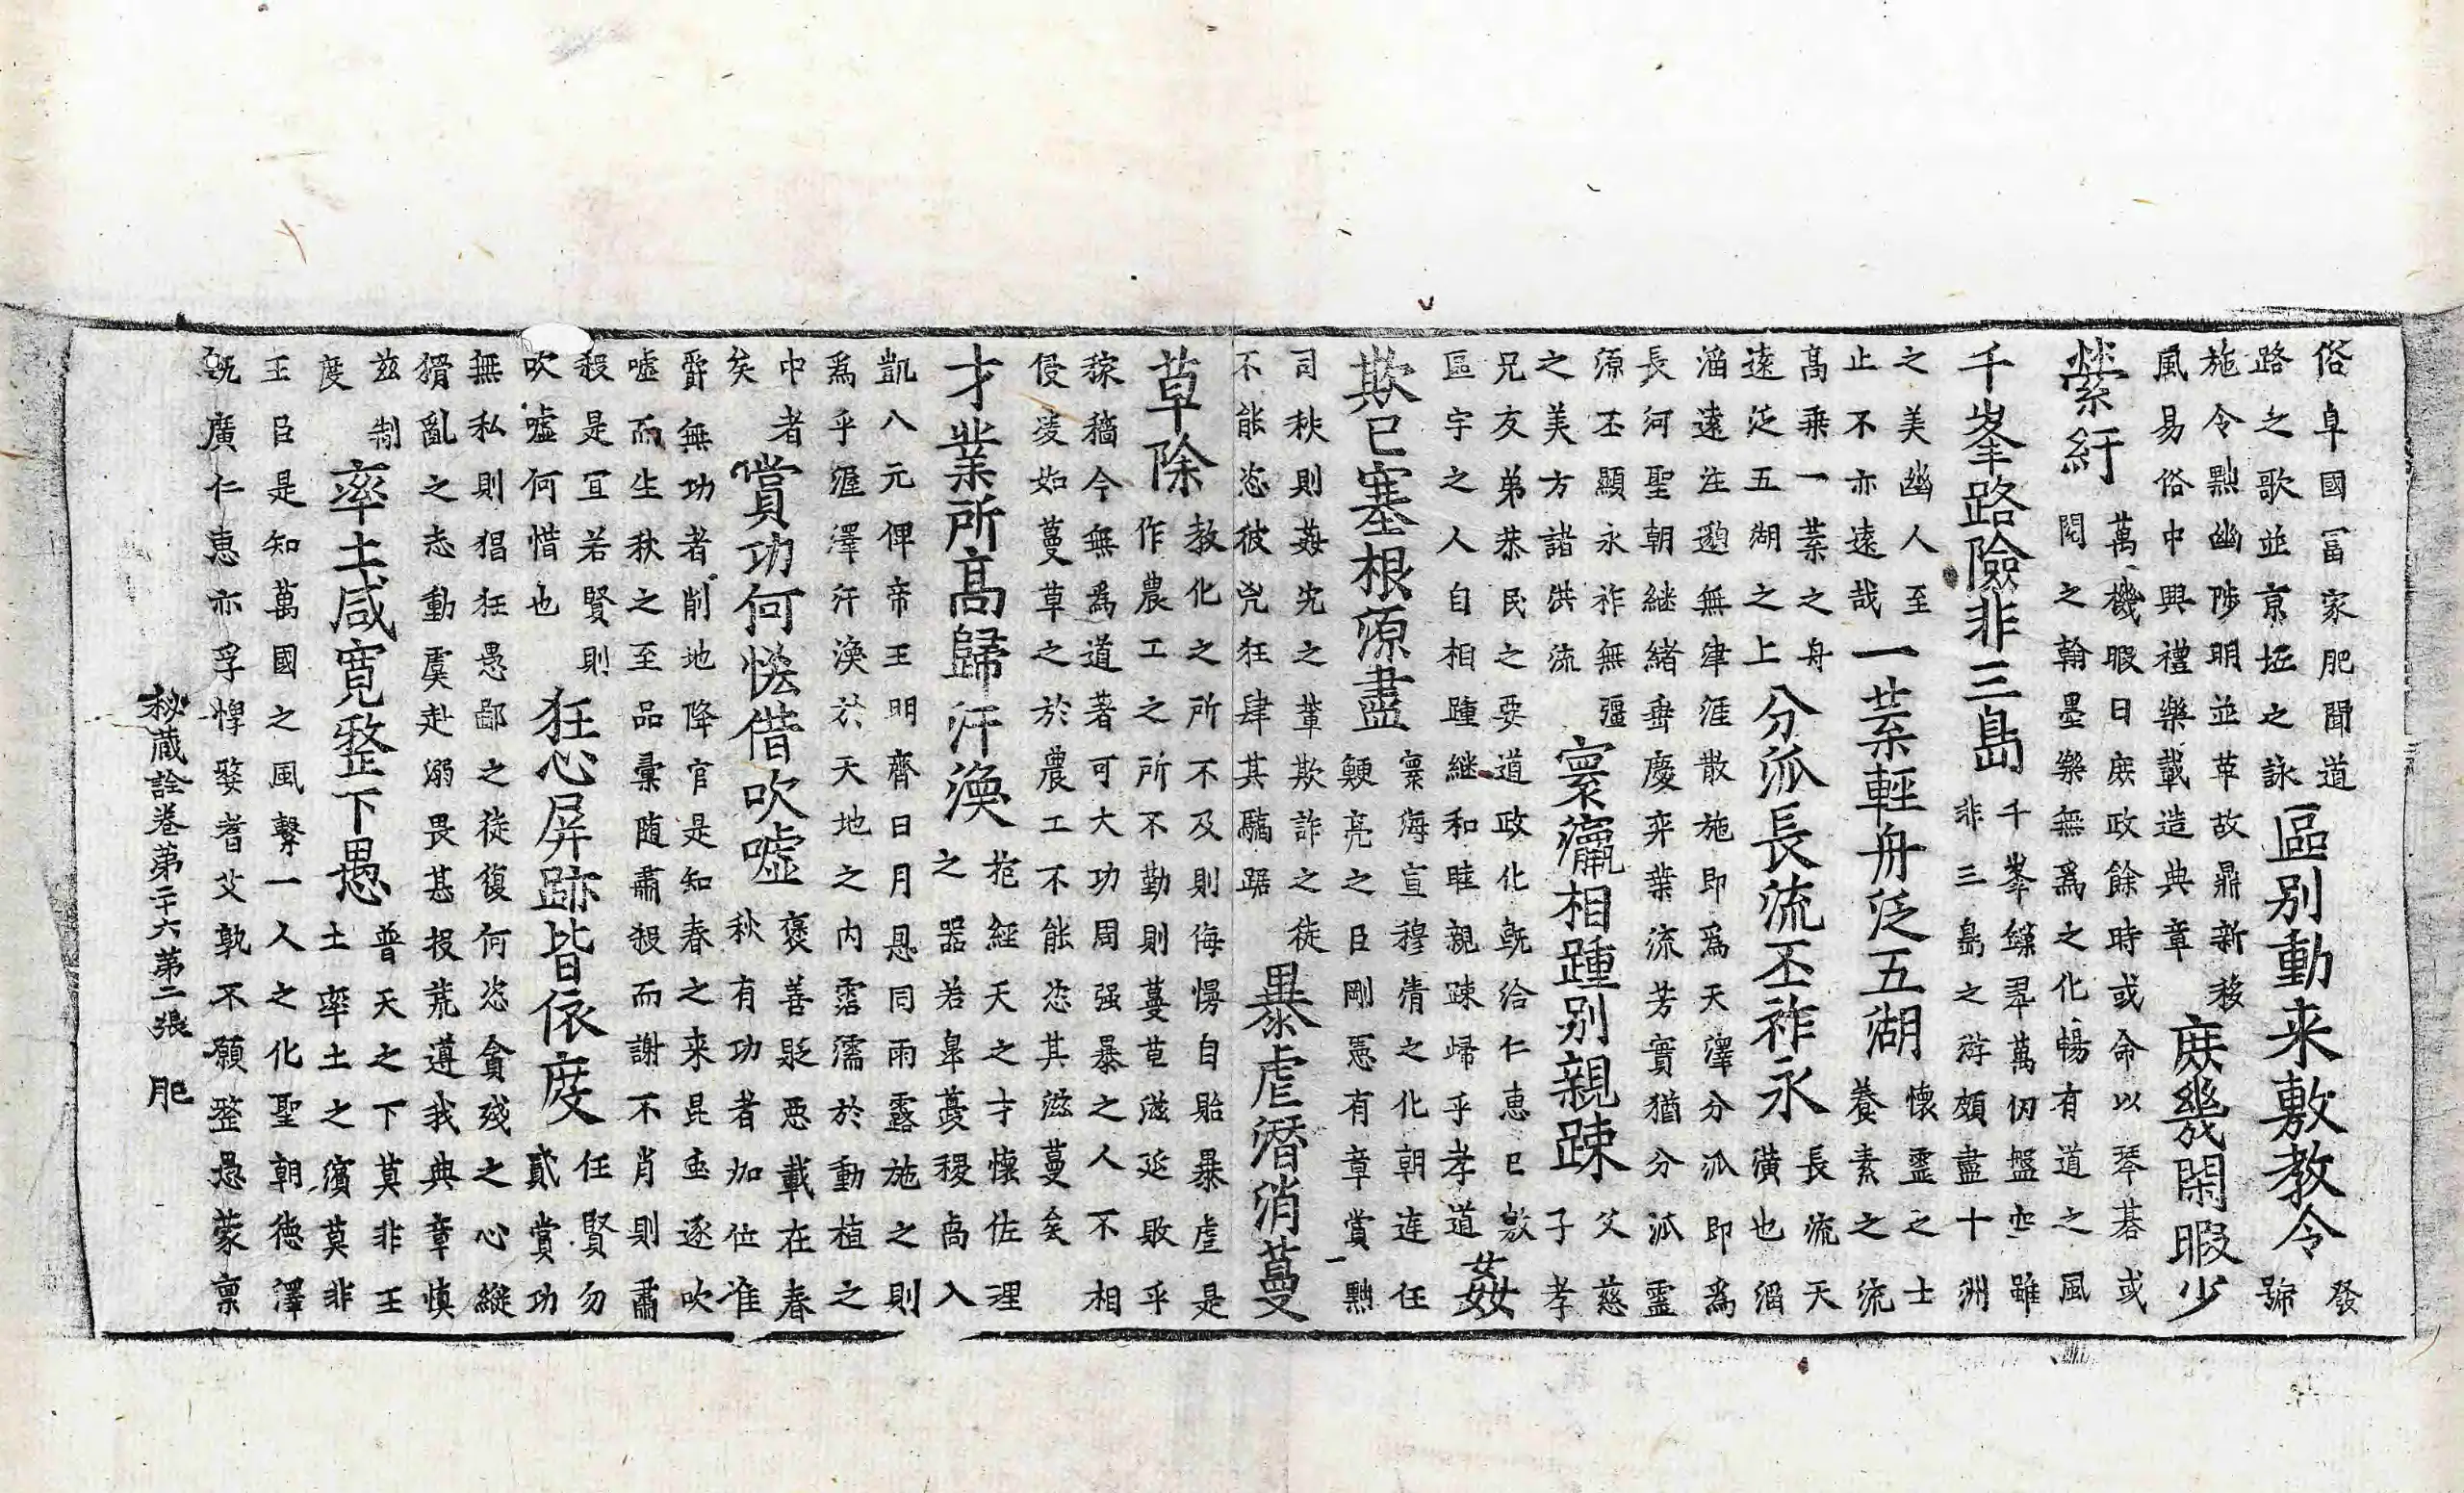 俗阜國富家肥聞道
路之歌並京坻之詠
區別動来敷教令
發
號
施令黜幽陟明並革故鼎新移
風易俗中興禮樂載造典章
庶幾閑暇少
縈紆
萬機暇日庶政餘時或命以琴碁或
閱之翰墨樂無為之化暢有道之風
千峯路險非三島
千峯鏁翠萬仞盤空雖
非三島之游頗盡十洲
之美幽人至
止不亦遠哉
一葉輕舟泛五湖
懷靈之士
養素之流
高乗一葉之舟
遠泛五湖之上
分派長流丕祚永
長流天
潢也滔
滔遠注邈無津涯散施即為天澤分派即為
長河聖朝継緒垂慶弈葉流芳實猶分派靈
源丕顯永祚無彊
之美方諸洪流
寰瀛相踵別親踈
父慈
子孝
兄友弟恭民之要道政化旣洽仁恵巳敷
區宇之人自相踵継和睦親踈歸乎孝道
姦
欺已塞根源盡
寰海宣穆清之化朝逹任
鯁亮之臣剛悪有章賞黜
司秋則姦宄之軰欺詐之徒
不能恣彼兇狂肆其驕踞
暴虐潛消蔓
草除
教化之所不及則侮慢自貽暴虐是
作農工之所不勤則蔓草滋延敗乎
稼穡今無為道著可大功周强暴之人不相
侵淩如蔓草之於農工不能恣其滋蔓矣
才業所高歸汗渙
抱經天之才懷佐理
之器若皐夔稷卨入
凱八元俾帝王明齊日月恩同雨露施之則
為乎渥澤汗渙於天地之内霑濡於動植之
中者
矣
賞功何恡借吹嘘
褒善貶悪載在春
秋有功者加位進
爵無功者削地降官是知春之来昆虫逐吹
嘘而生秋之至品彙随肅殺而謝不肖則肅
殺是冝若賢則
吹嘘何惜也
狂心屏跡皆依度
任賢勿
貳賞功
無私則猖狂愚鄙之徒復何恣貪殘之心縱
猾亂之志動虞赴溺畏甚投荒遵我典章慎
茲制
度
率土咸寛整下愚
普天之下莫非王
土率土之濱莫非
王臣是知萬國之風繫一人之化聖朝徳澤
旣廣仁恵亦孚惸嫠耆艾孰不願整愚蒙禀
秘蔵詮巻第二十六第二張 肥